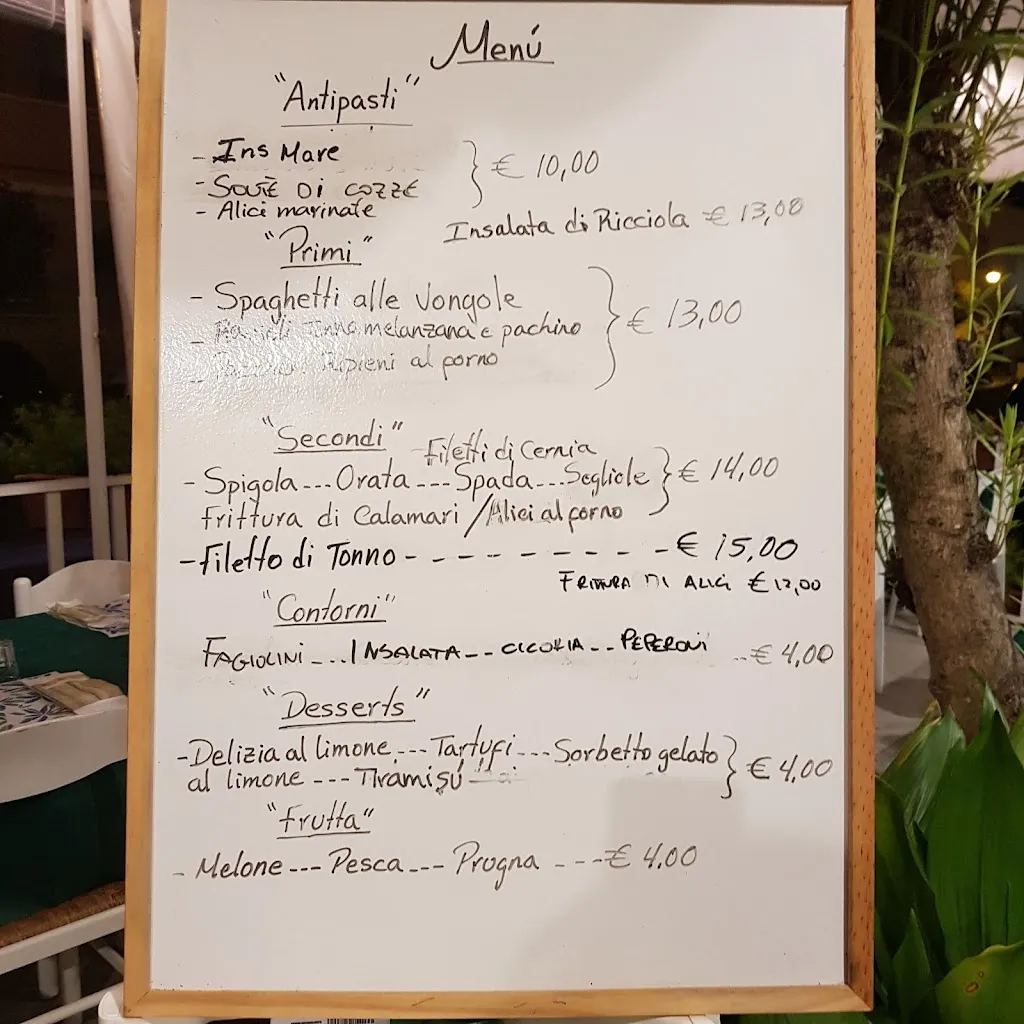 Menú
"Antipasti"
- Ins Mare
- SOUTÈ Di COZZE
- Alici marinate
} € 10,00
Insalata di Ricciola € 13,00
"Primi"
- Spaghetti alle Vongole
- Ravioli Tonno melanzana e pachino
- Ripieni al forno
} € 13,00
"Secondi"
Filetti di Cernia
- Spigola---Orata---Spada---Sogliole } € 14,00
frittura di Calamari / Alici al forno
- filetto di Tonno - - - - - - - - - - € 15,00
FRITTURA DI ALICI € 12,00
"Contorni"
FAGIOLINI ---INSALATA-- CICORIA -- PEPERONI --€ 4,00
"Desserts"
- Delizia al limone ---Tartufi---Sorbetto gelato
al limone ---Tiramisú } € 4,00
"frutta"
- Melone---Pesca---Prugna ---€ 4.00